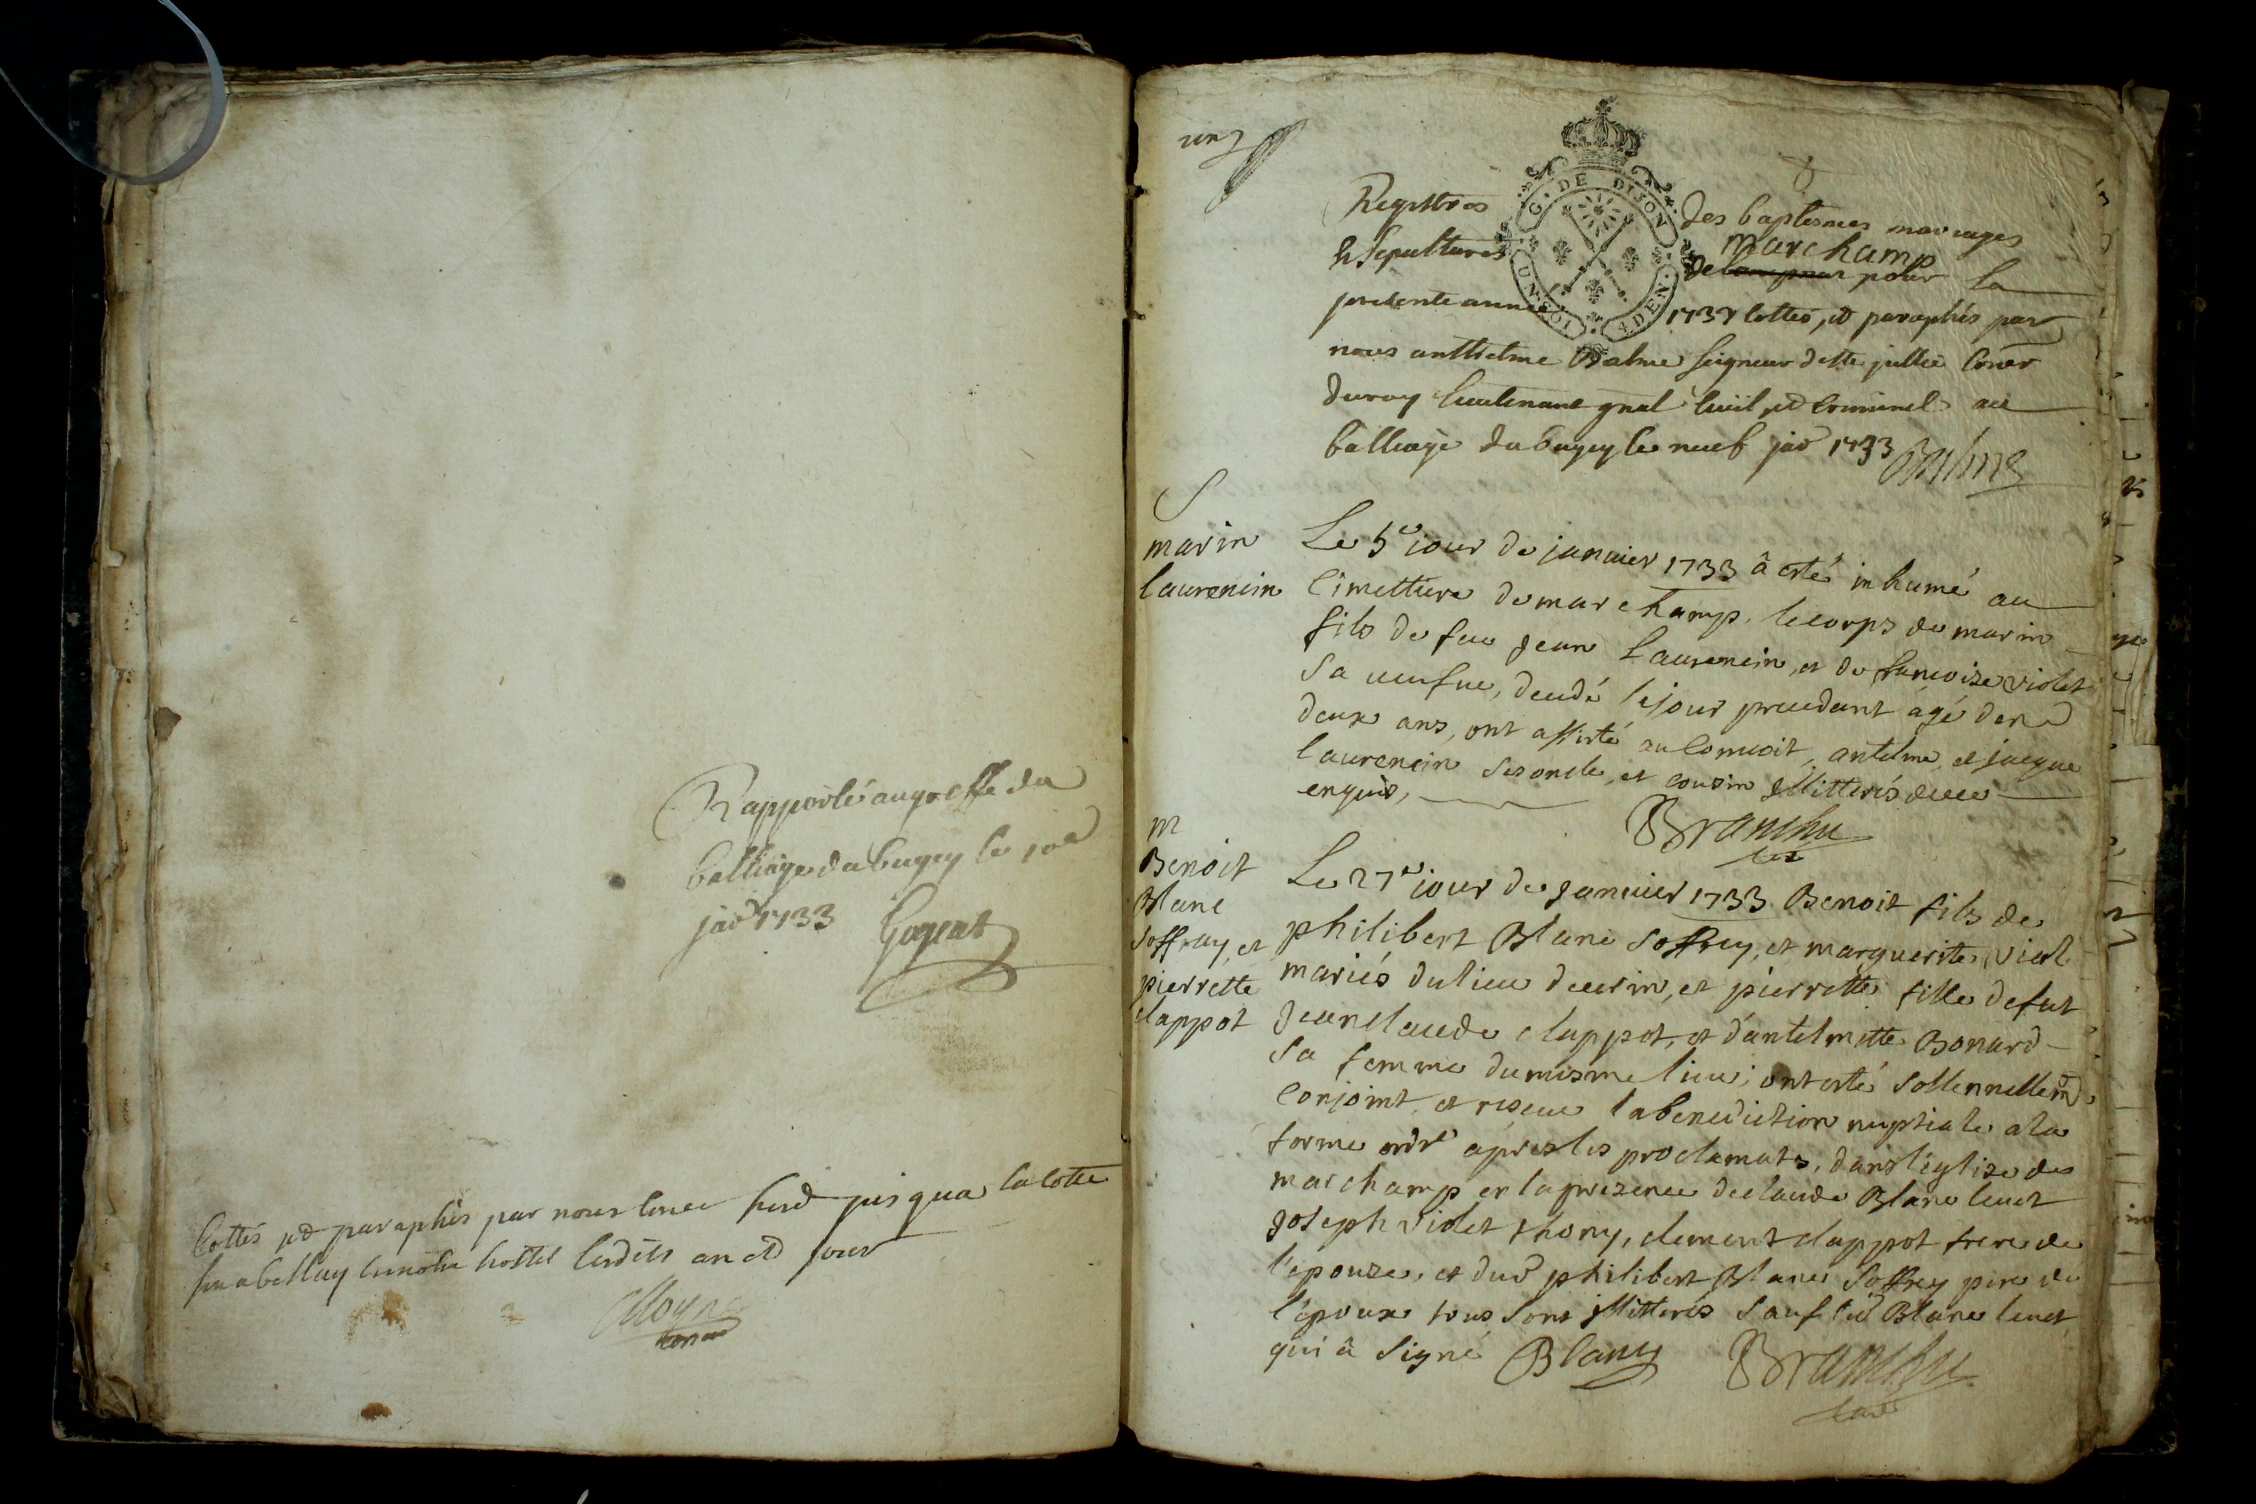 Rapporté au greffe du
balliage du bugey le
jad 1733
Cottés et paraphés par nous jusqua la cotte
a bellay hostel lesdits an et jour
un
G. DE DIJON
Registres des baptesmes mariages
et sepultures marchamp
de pour la
presente année cottés, et paraphés par
nous anthelme Balme seigneur de
du roy lieutenant gnal civil et criminel au
balliage du bugey le neuf jad 1733 Balme
S
marin
laurencin
Le 5e iour de januier 1733 â esté inhumé au
Cimettiere de marchamp, le corps de marin
fils de feu Jean Laurencin, et de francoise violet
sa veufue, decedé le jour precedant agé den
deux ans, ont assisté au Conuoit, antelme, et jacque
laurencin ses oncle, et cousin illitterés
enquis,
Branche
m
Benoit
Blanc
soffray, et
pierrette
clappot
Le 27e iour de Januier 1733 Benoit fils de
philibert Blanc soffrey, et marguerite
mariés du lieu de et pierrette fille de fut
Jean claude clappot, et d'antelmette Bonard
sa femme du mesme lieu; ont esté sollennellemt
Conjoint, et receue la benediction nuptiale a la
forme ordre aprés les proclamats, dans l'églize de
marchamp en la prezence de claude Blanc
Joseph violet thony, clement clappot frere de
l'épouze, et dud philibert Blanc soffrey pere de
l'époux tous sont illitterés sauf led Blanc
qui â signé Blanc Branche